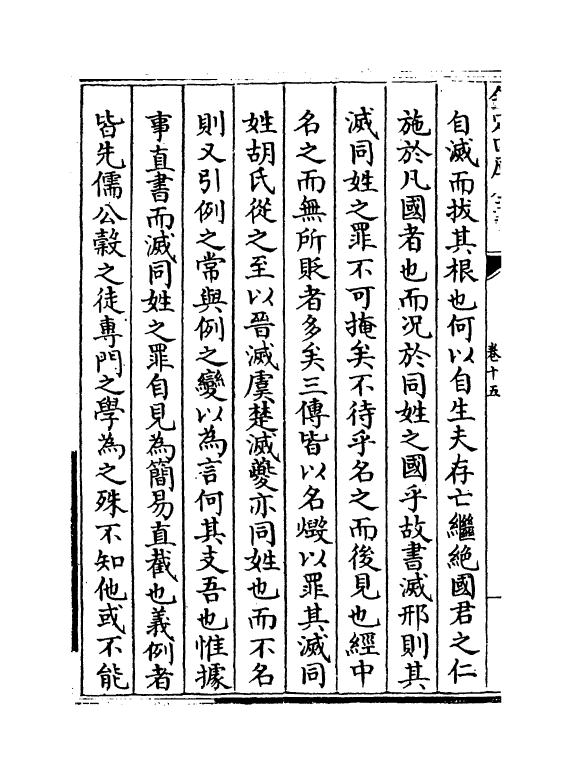 欽定四庫全書
卷十五
自滅而拔其根也何以自生夫存亡繼絶國君之仁
施於凡國者也而况於同姓之國乎故書滅邢則其
滅同姓之罪不可掩矣不待乎名之而後見也經中
名之而無所貶者多矣三傳皆以名燬以罪其滅同
姓胡氏從之至以晉滅虞楚滅夔亦同姓也而不名
則又引例之常與例之變以為言何其支吾也惟據
事直書而滅同姓之罪自見為簡易直截也義例者
皆先儒公糓之徒專門之學為之殊不知他或不能